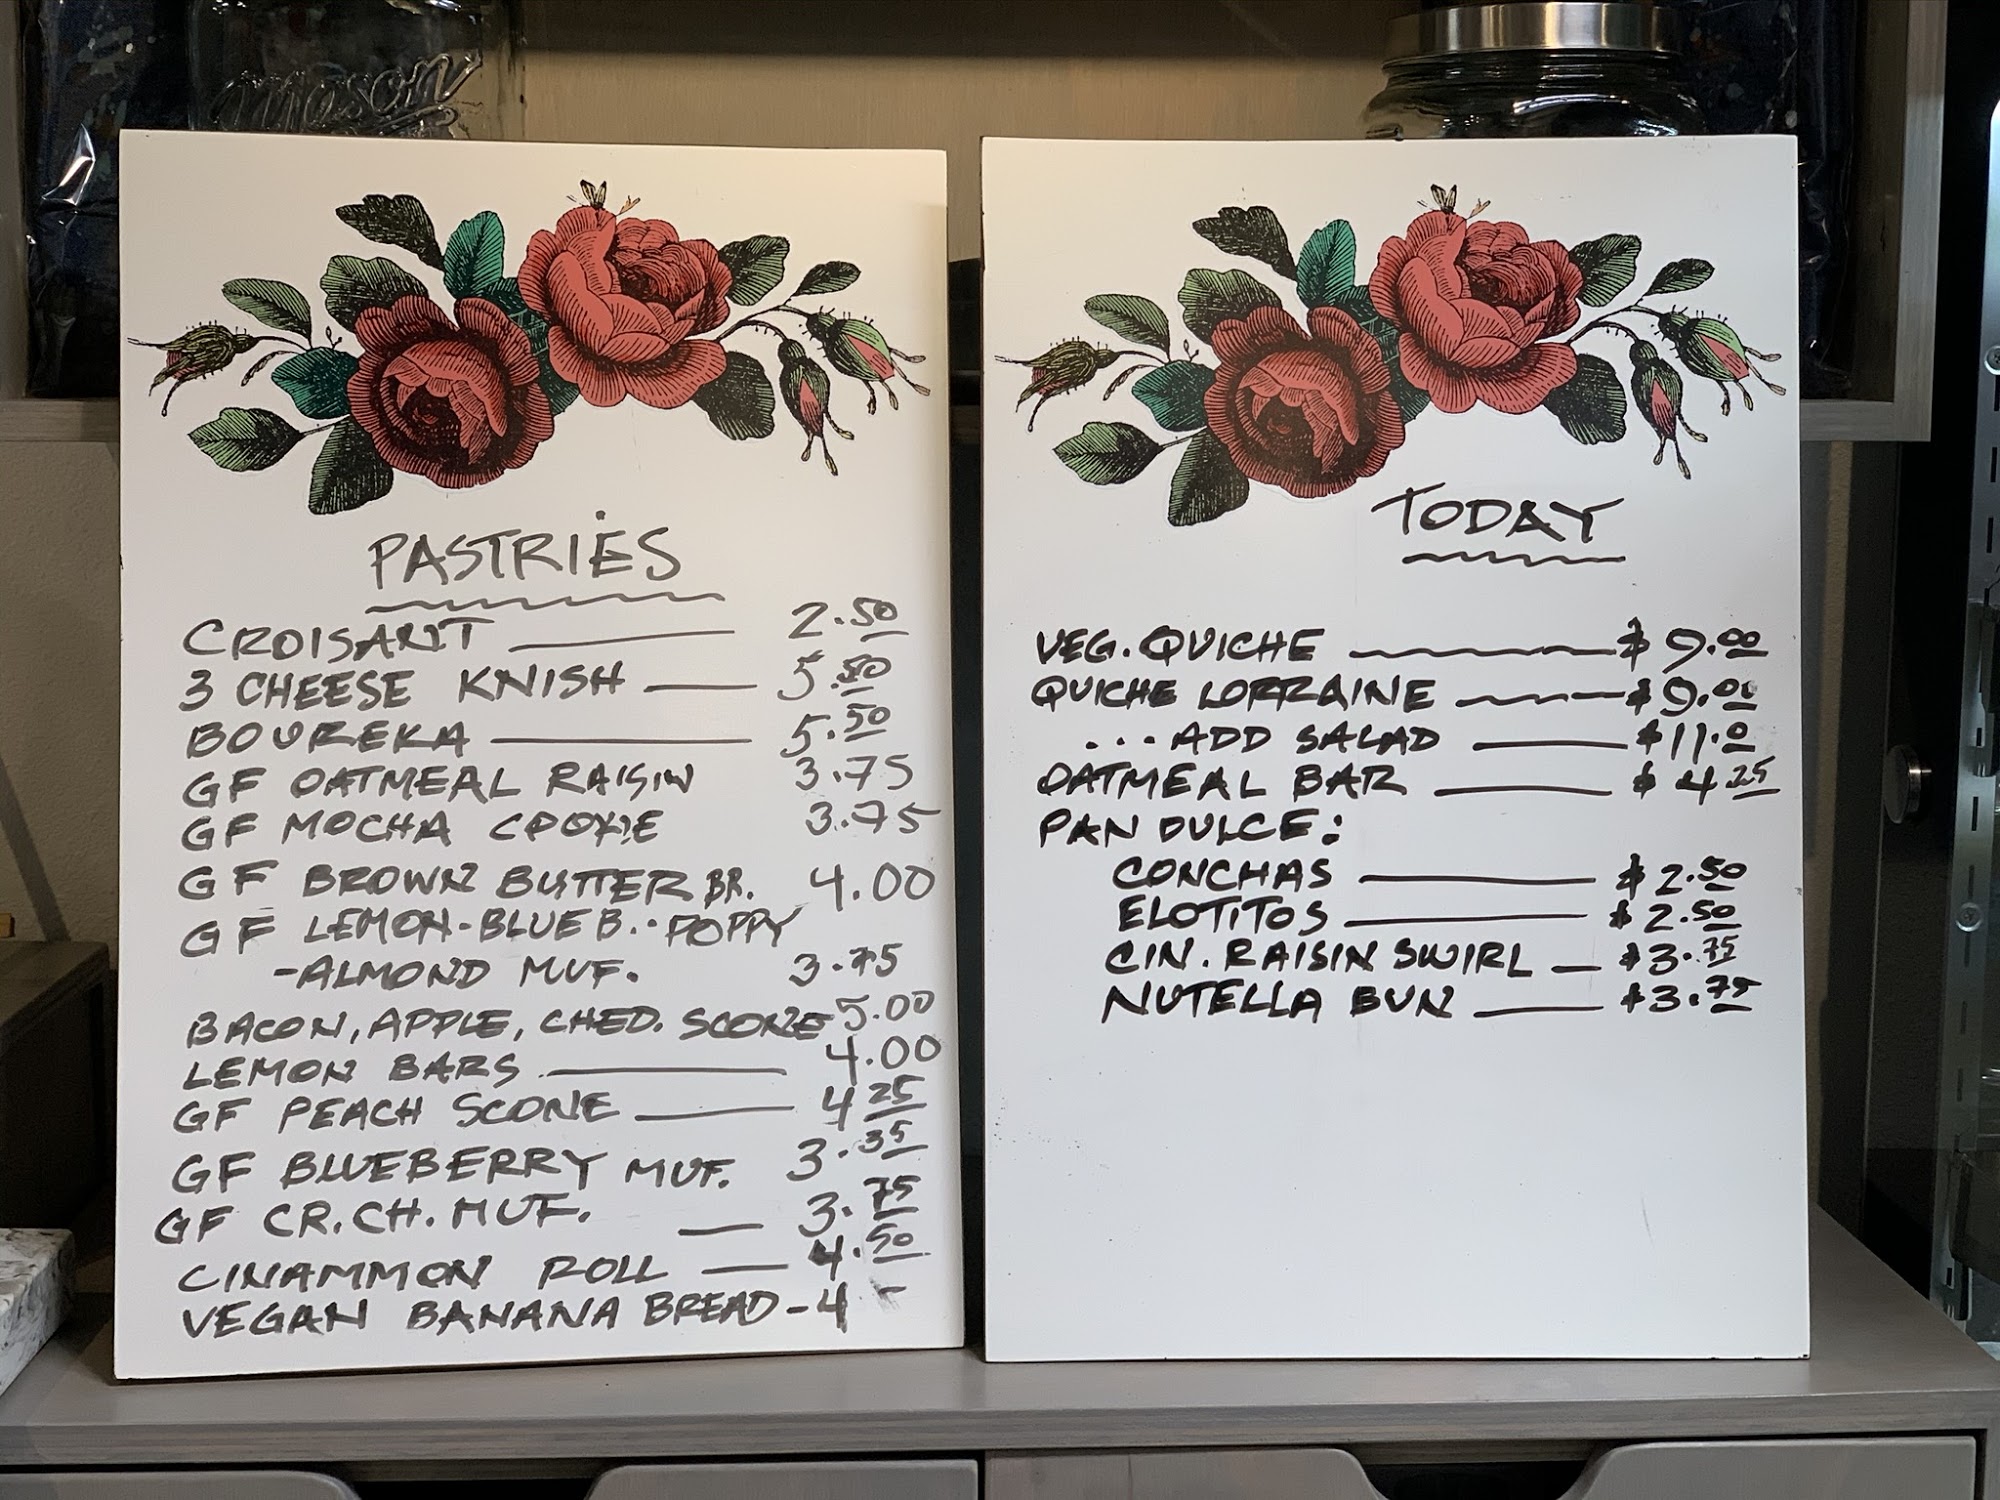 Mason
PASTRIES
CROISANT 2.50
3 CHEESE KNISH 5.50
BOUREKA 5.50
GF OATMEAL RAISIN 3.75
GF MOCHA COOKIE 3.75
GF BROWN BUTTER BR. 4.00
GF LEMON-BLUEB.-POPPY
-ALMOND MUF. 3.75
BACON, APPLE, CHED. SCONE 5.00
LEMON BARS 4.00
GF PEACH SCONE 4 25
GF BLUEBERRY MUF. 3.35
GF CR.CH. MUF. 3.75
CINAMMON ROLL 4.50
VEGAN BANANA BREAD - 4 -
TODAY
VEG. QUICHE $ 9.00
QUICHE LORRAINE $ 9.00
...ADD SALAD $ 11.0
OATMEAL BAR $ 4 25
PAN DULCE:
CONCHAS $ 2.50
ELOTITOS $ 2.50
CIN. RAISIN SWIRL $3.75
NUTELLA BUN $3.75